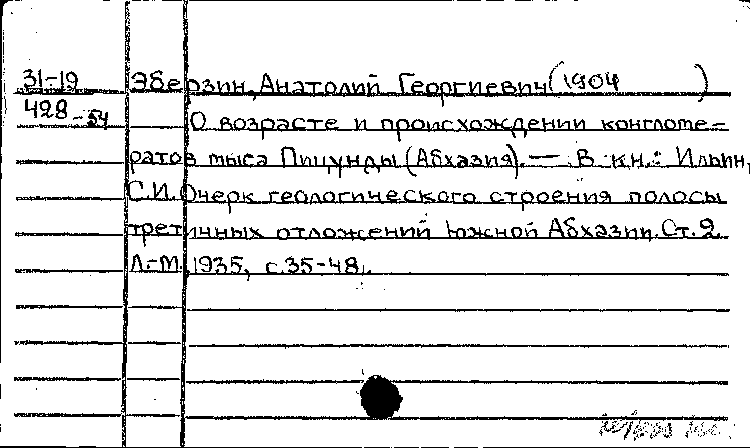 31-19 Эберзин, Анатолий Георгиевич (1904 )
428-54 О возрасте и происхождении конгломе-
ратов мыса Пицунды (Абхазия). — В кн.: Ильин,
С.И. Очерк геологического строения полосы
третичных отложений Южной Абхазии. Ст. 2
Л.-М., 1935, с. 35-48.